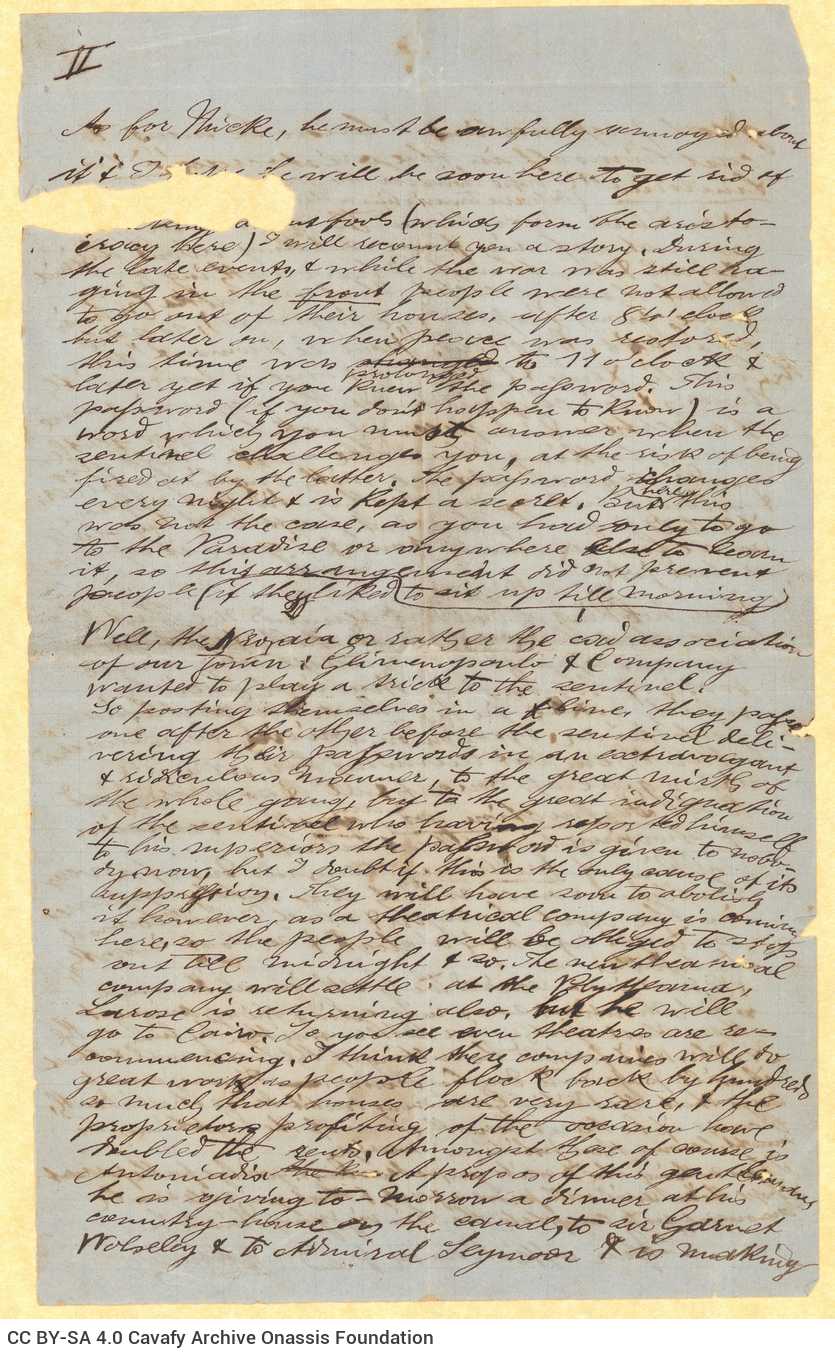 II
As for Micke, he must be awfully annoyed about
it & I he will be soon here to get rid of
fools (which form the aristo-
cracy here) I will recount you a story. During
the late events, & while the war was still ra-
ging in the front people were not allowed
to go out of their houses, after 8 o'clock
but later on, when peace was restored,
this time was prolonged to 11 o'clock &
later yet if you knew the password. This
password (if you don't happen to know) is a
word which you must answer when the
sentinel challenges you, at the risk of being
fired at by the latter. The password changes
every night & is kept a secret. But here this
was not the case, as you had only to go
to the Paradise or anywhere else to learn
it, so this arrangement did not prevent
people (if they liked) to sit up till morning
Well, the or rather the association
of our town: Glimenopoulo & Company
wanted to play a trick to the sentinel.
So posting themselves in a line, they pass
one after the other before the sentinel deli-
vering their passwords in an extravagant
& ridiculous manner, to the great mirth of
the whole gang, but to the great indignation
of the sentinel who having reported himself
to his superiors the password is given to nobo-
dy now, but I doubt if this is the only cause of its
suppression. They will have soon to abolish
it however, as a theatrical company is coming
here, so the people will be obliged to stop
out till midnight & so. The new theatrical
company will settle at the Polytheama,
Larose is returning also, but he will
go to Cairo. So you see even theatres are re-
commencing. I think these companies will do
great work as people flock back by hundreds
so much that houses are very rare, & the
proprietors profiting of the occasion have
doubled the rents. Amongst those of course is
Antoniadis A propos of this gentleman
he is giving to-morrow a dinner at his
country-house on the canal, to sir Garnet
Wolseley & to Admiral Seymoor & is making
CC BY-SA 4.0 Cavafy Archive Onassis Foundation